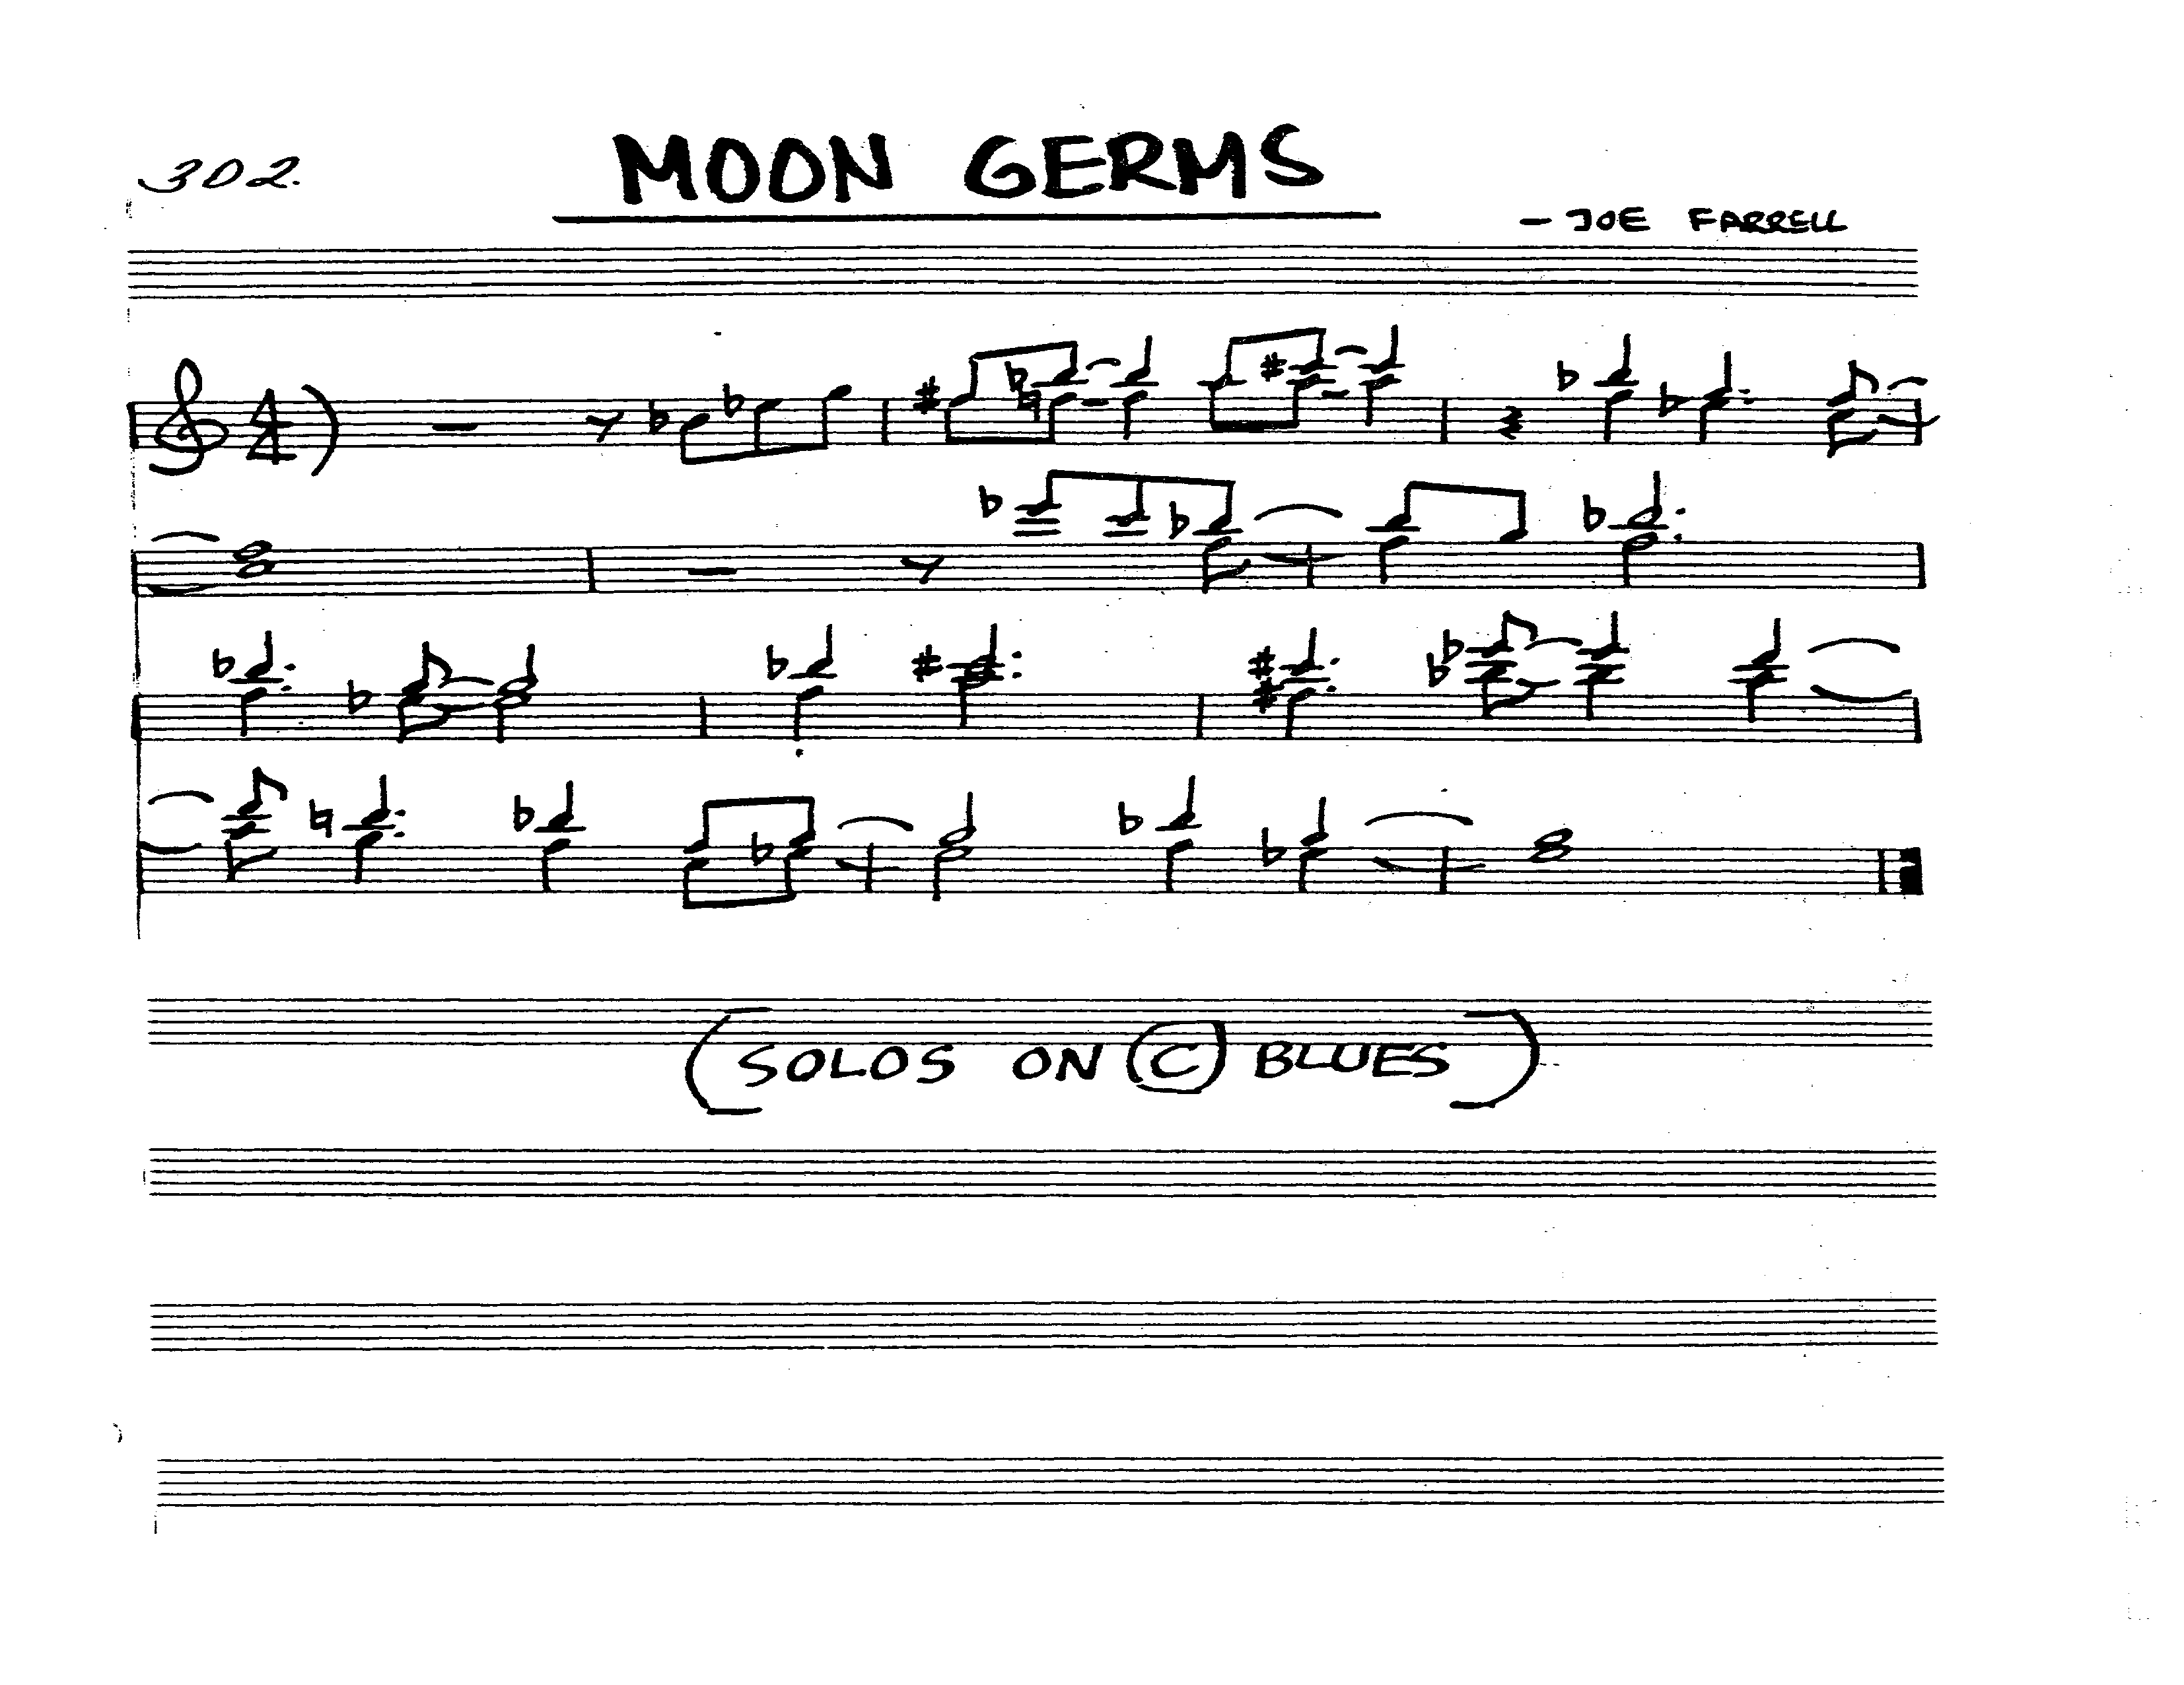 302.
MOON GERMS
- JOE FARRELL
4
4
(SOLOS ON (C) BLUES)